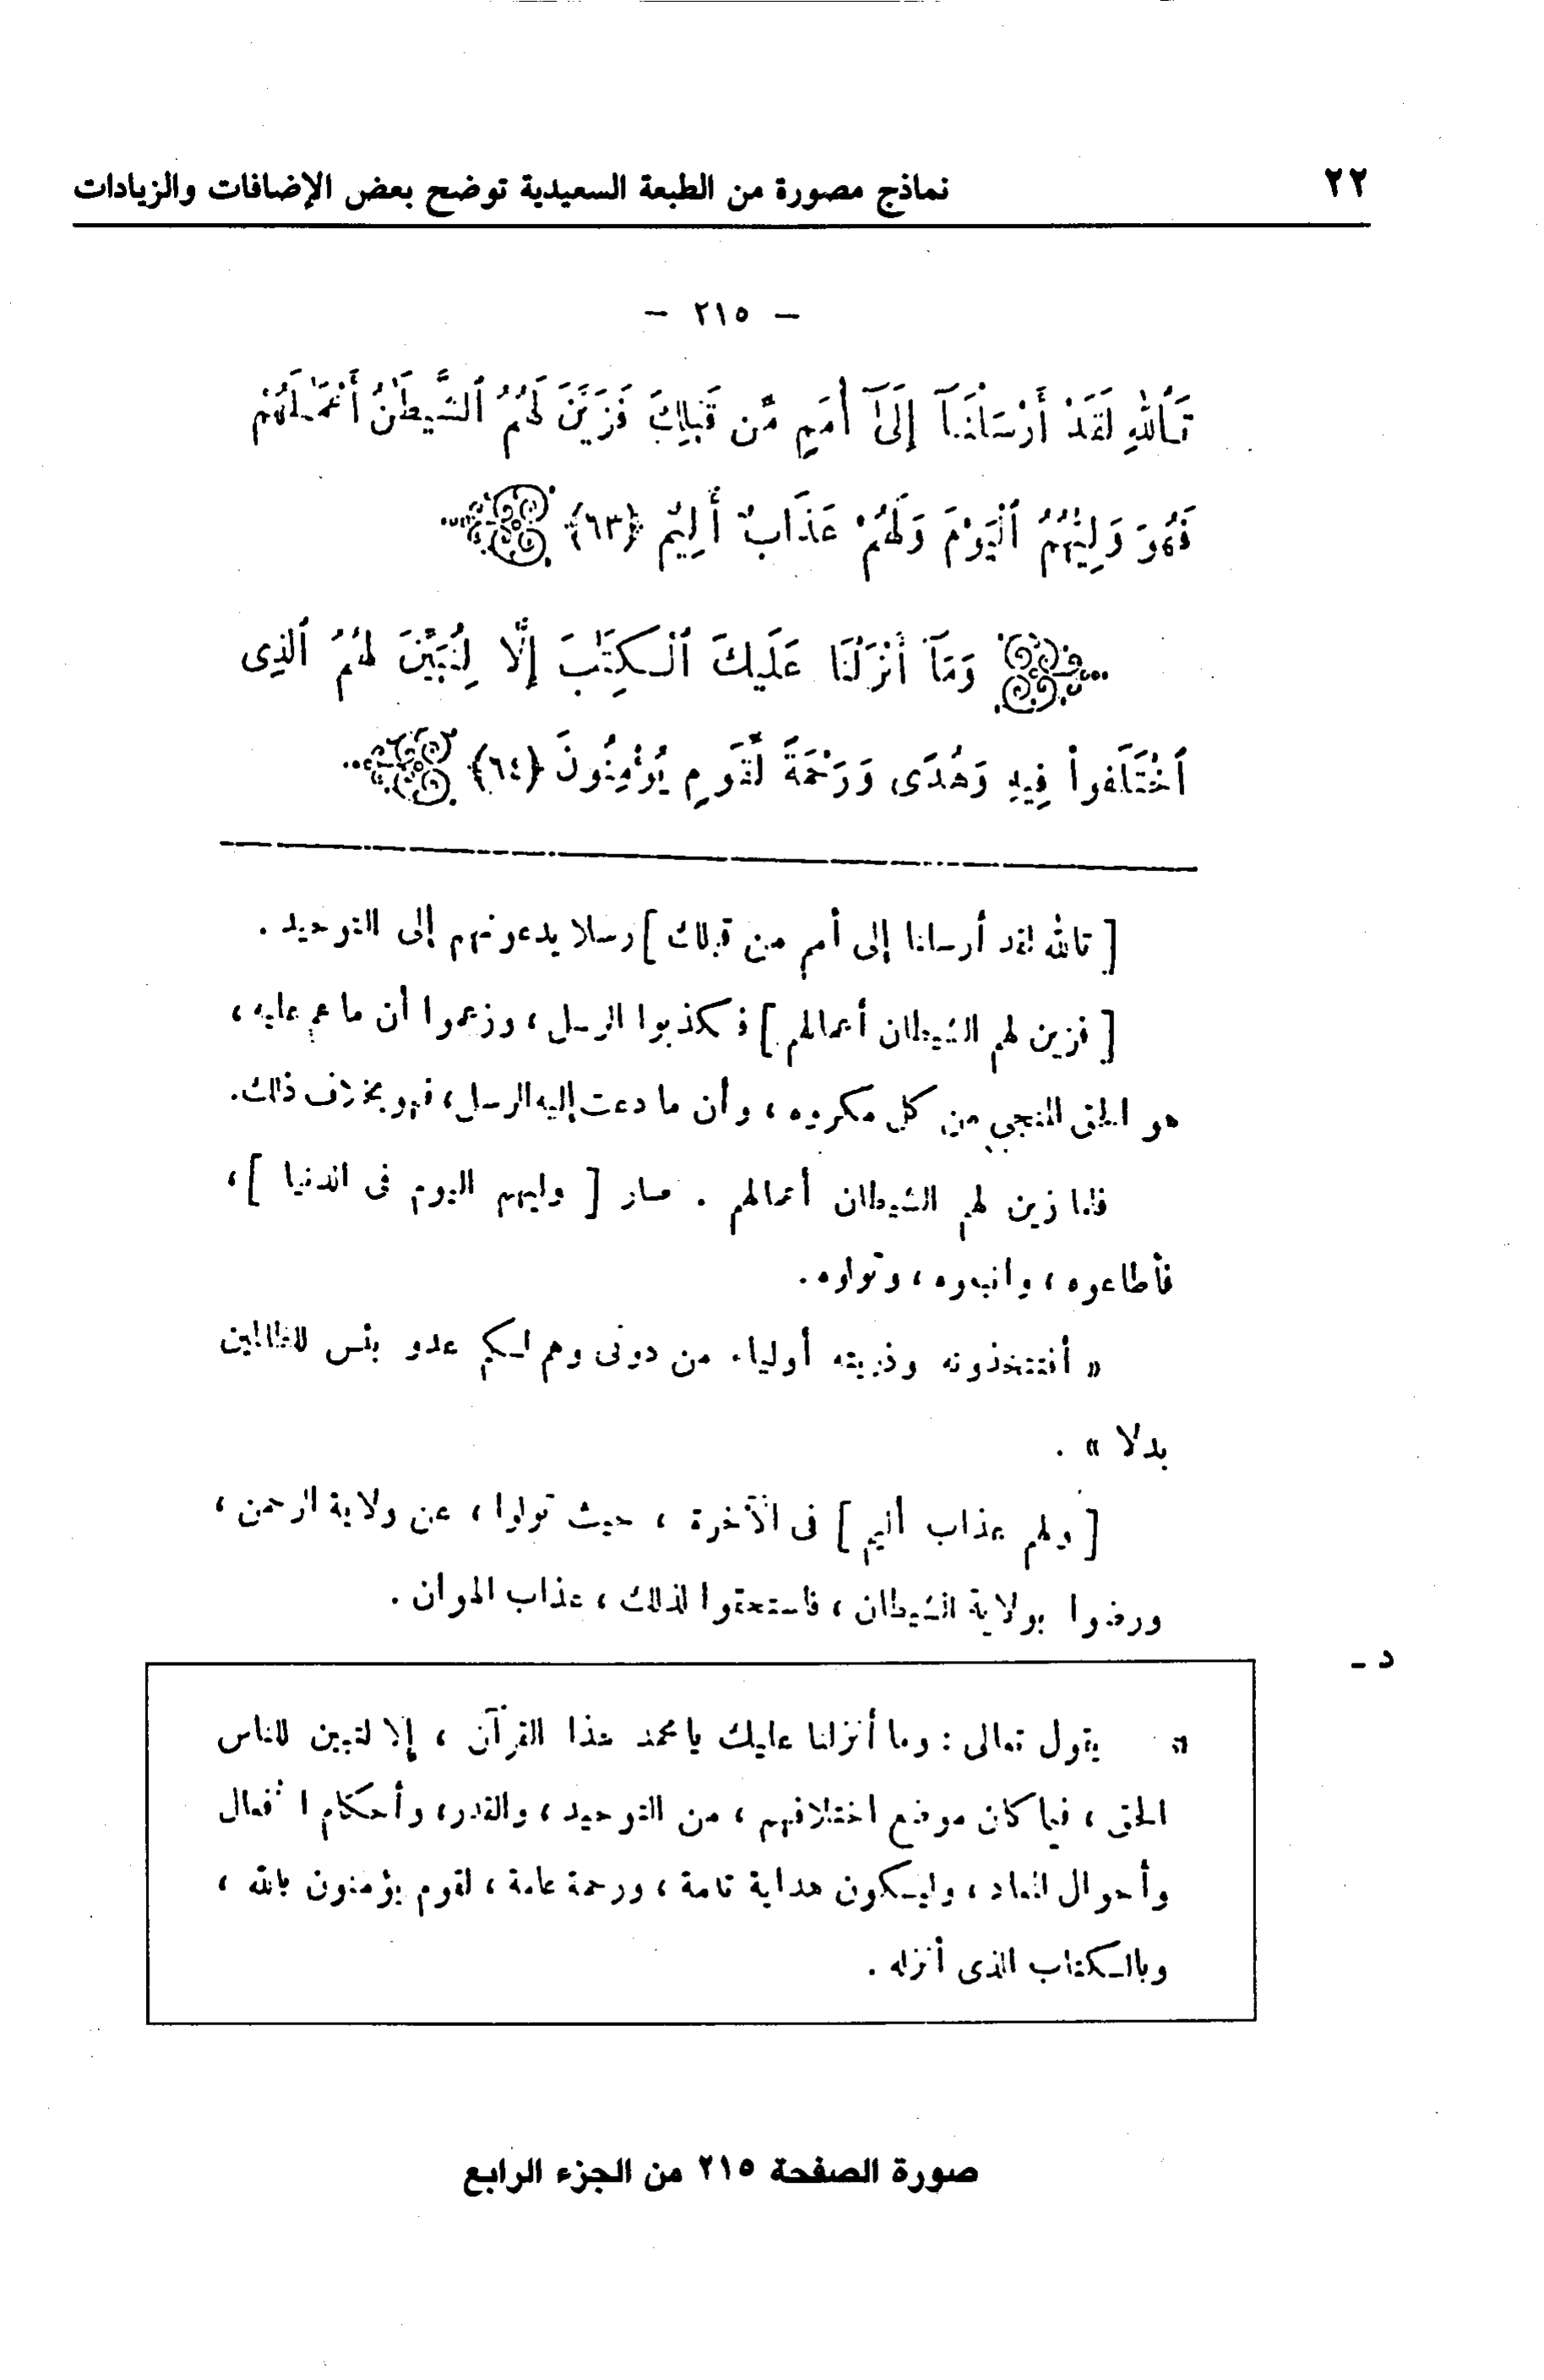 ٢٢ نماذج مصورة من الطبعة السعيدية توضح بعض الإضافات والزيادات
– ٢١٥ –
تَٱللَّهِ لَقَدْ أَرْسَلْنَآ إِلَىٰٓ أُمَمٍ مِّن قَبْلِكَ فَزَيَّنَ لَهُمُ ٱلشَّيْطَٰنُ أَعْمَٰلَهُمْ
فَهُوَ وَلِيُّهُمُ ٱلْيَوْمَ وَلَهُمْ عَذَابٌ أَلِيمٌ ﴿٦٣﴾
وَمَآ أَنْزَلْنَا عَلَيْكَ ٱلْكِتَٰبَ إِلَّا لِتُبَيِّنَ لَهُمُ ٱلَّذِى
ٱخْتَلَفُوا۟ فِيهِ وَهُدًى وَرَحْمَةً لِّقَوْمٍ يُؤْمِنُونَ ﴿٦٤﴾
[ تالله لقد أرسلنا إلى أمم من قبلك ] رسلا يدعونهم إلى التوحيد .
[ فزين لهم الشيطان أعمالهم ] فكذبوا الرسل ، وزعموا أن ما هم عليه ،
هو الحق المنجي من كل مكروه ، وأن ما دعت إليه الرسل ، فهو بخلاف ذلك .
فلما زين لهم الشيطان أعمالهم . صار [ وليهم اليوم فى الدنيا ] ،
فأطاعوه ، واتبعوه ، وتولوه .
« أفتتخذونه وذريته أولياء من دونى وهم لكم عدو بئس للظالمين
بدلا » .
[ ولهم عذاب أليم ] فى الآخرة ، حيث تولوا ، عن ولاية الرحمن ،
ورضوا بولاية الشيطان ، فاستحقوا لذلك ، عذاب الهوان .
د –
« يقول تعالى : وما أنزلنا عليك يا محمد هذا القرآن ، إلا لتبين للناس
الحق ، فيما كان موضع اختلافهم ، من التوحيد ، والقدر ، وأحكام الأفعال
وأحوال المعاد ، وليكون هداية تامة ، ورحمة عامة ، لقوم يؤمنون بالله ،
وبالكتاب الذى أنزله .
صورة الصفحة ٢١٥ من الجزء الرابع